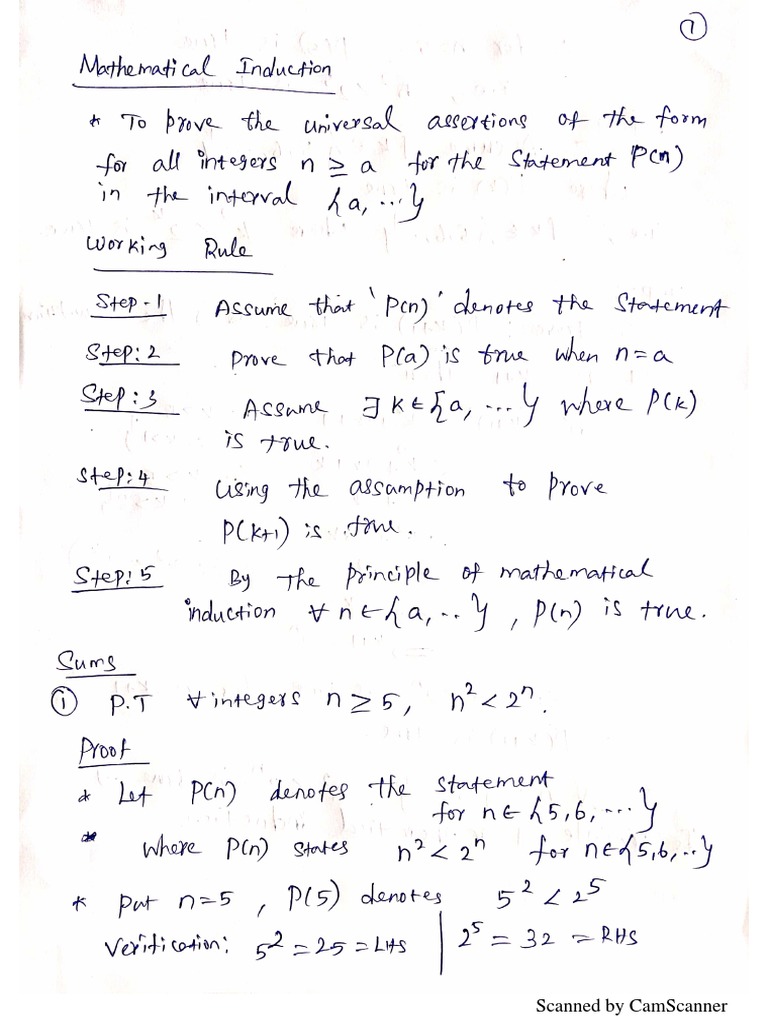 1
Mathematical Induction
* To prove the universal assertions of the form
for all integers n ≥ a for the statement P(n)
in the interval {a, ...}
Working Rule
Step-1 Assume that 'P(n)' denotes the Statement
Step:2 Prove that P(a) is true when n=a
Step:3 Assume ∃ k∈{a, ...} where P(k)
is true.
Step:4 Using the assumption to prove
P(k+1) is true.
Step:5 By the principle of mathematical
induction ∀ n∈{a, ..}, P(n) is true.
Sums
① P.T ∀ integers n ≥ 5, n² < 2ⁿ.
Proof
* Let P(n) denotes the statement
for n∈{5,6, ...}
* where P(n) states n² < 2ⁿ for n∈{5,6, ..}
* Put n=5, P(5) denotes 5² < 2⁵
Verification: 5² = 25 = LHS | 2⁵ = 32 = RHS
Scanned by CamScanner